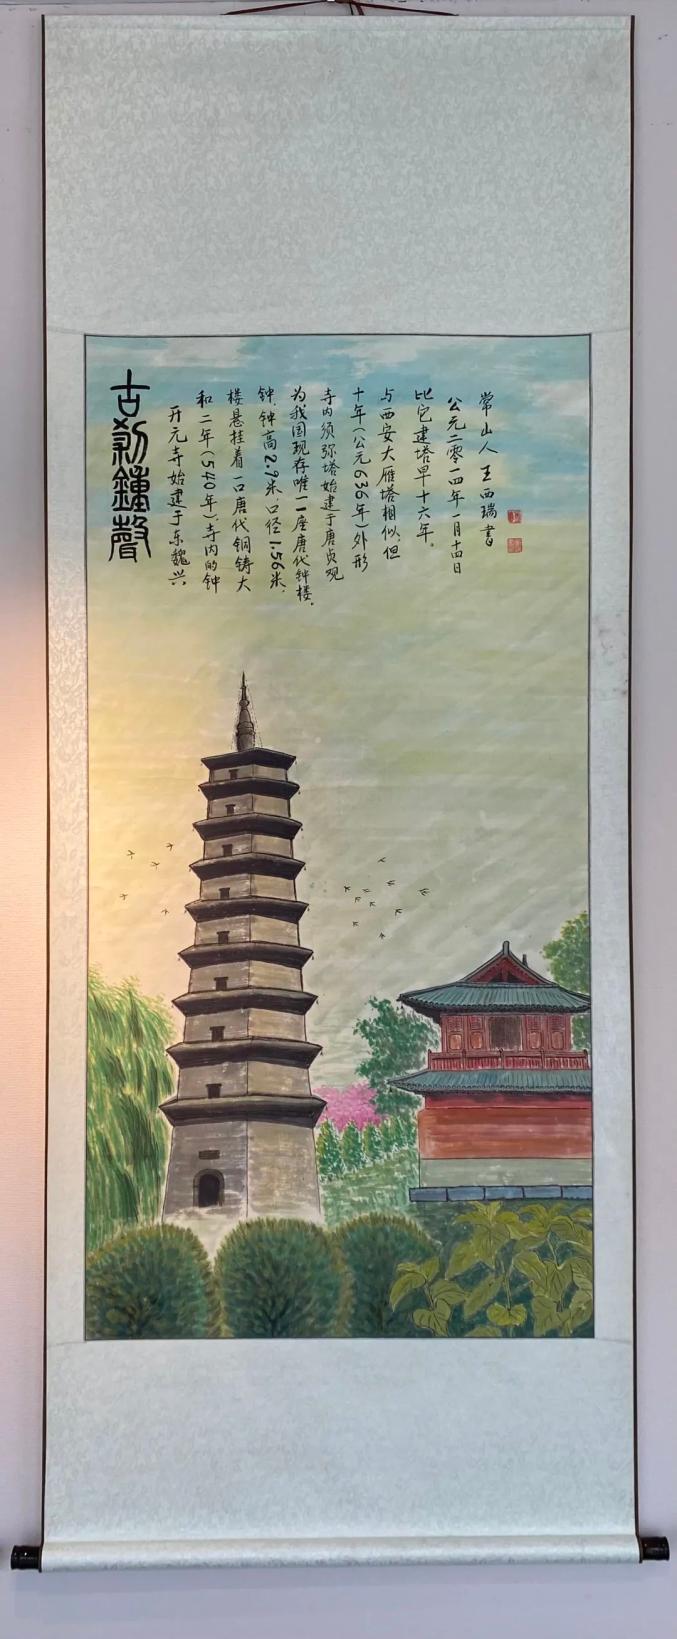 古刹鐘聲
开元寺始建于东魏兴
和二年(540年),寺内的钟
楼悬挂着一口唐代铜铸大
钟,钟高2.9米,口径1.56米,
为我国现存唯一一座唐代钟楼.
寺内须弥塔始建于唐贞观
十年(公元636年)外形
与西安大雁塔相似,但
比它建塔早十六年。
公元二零一四年一月十四日
常山人王西瑞書